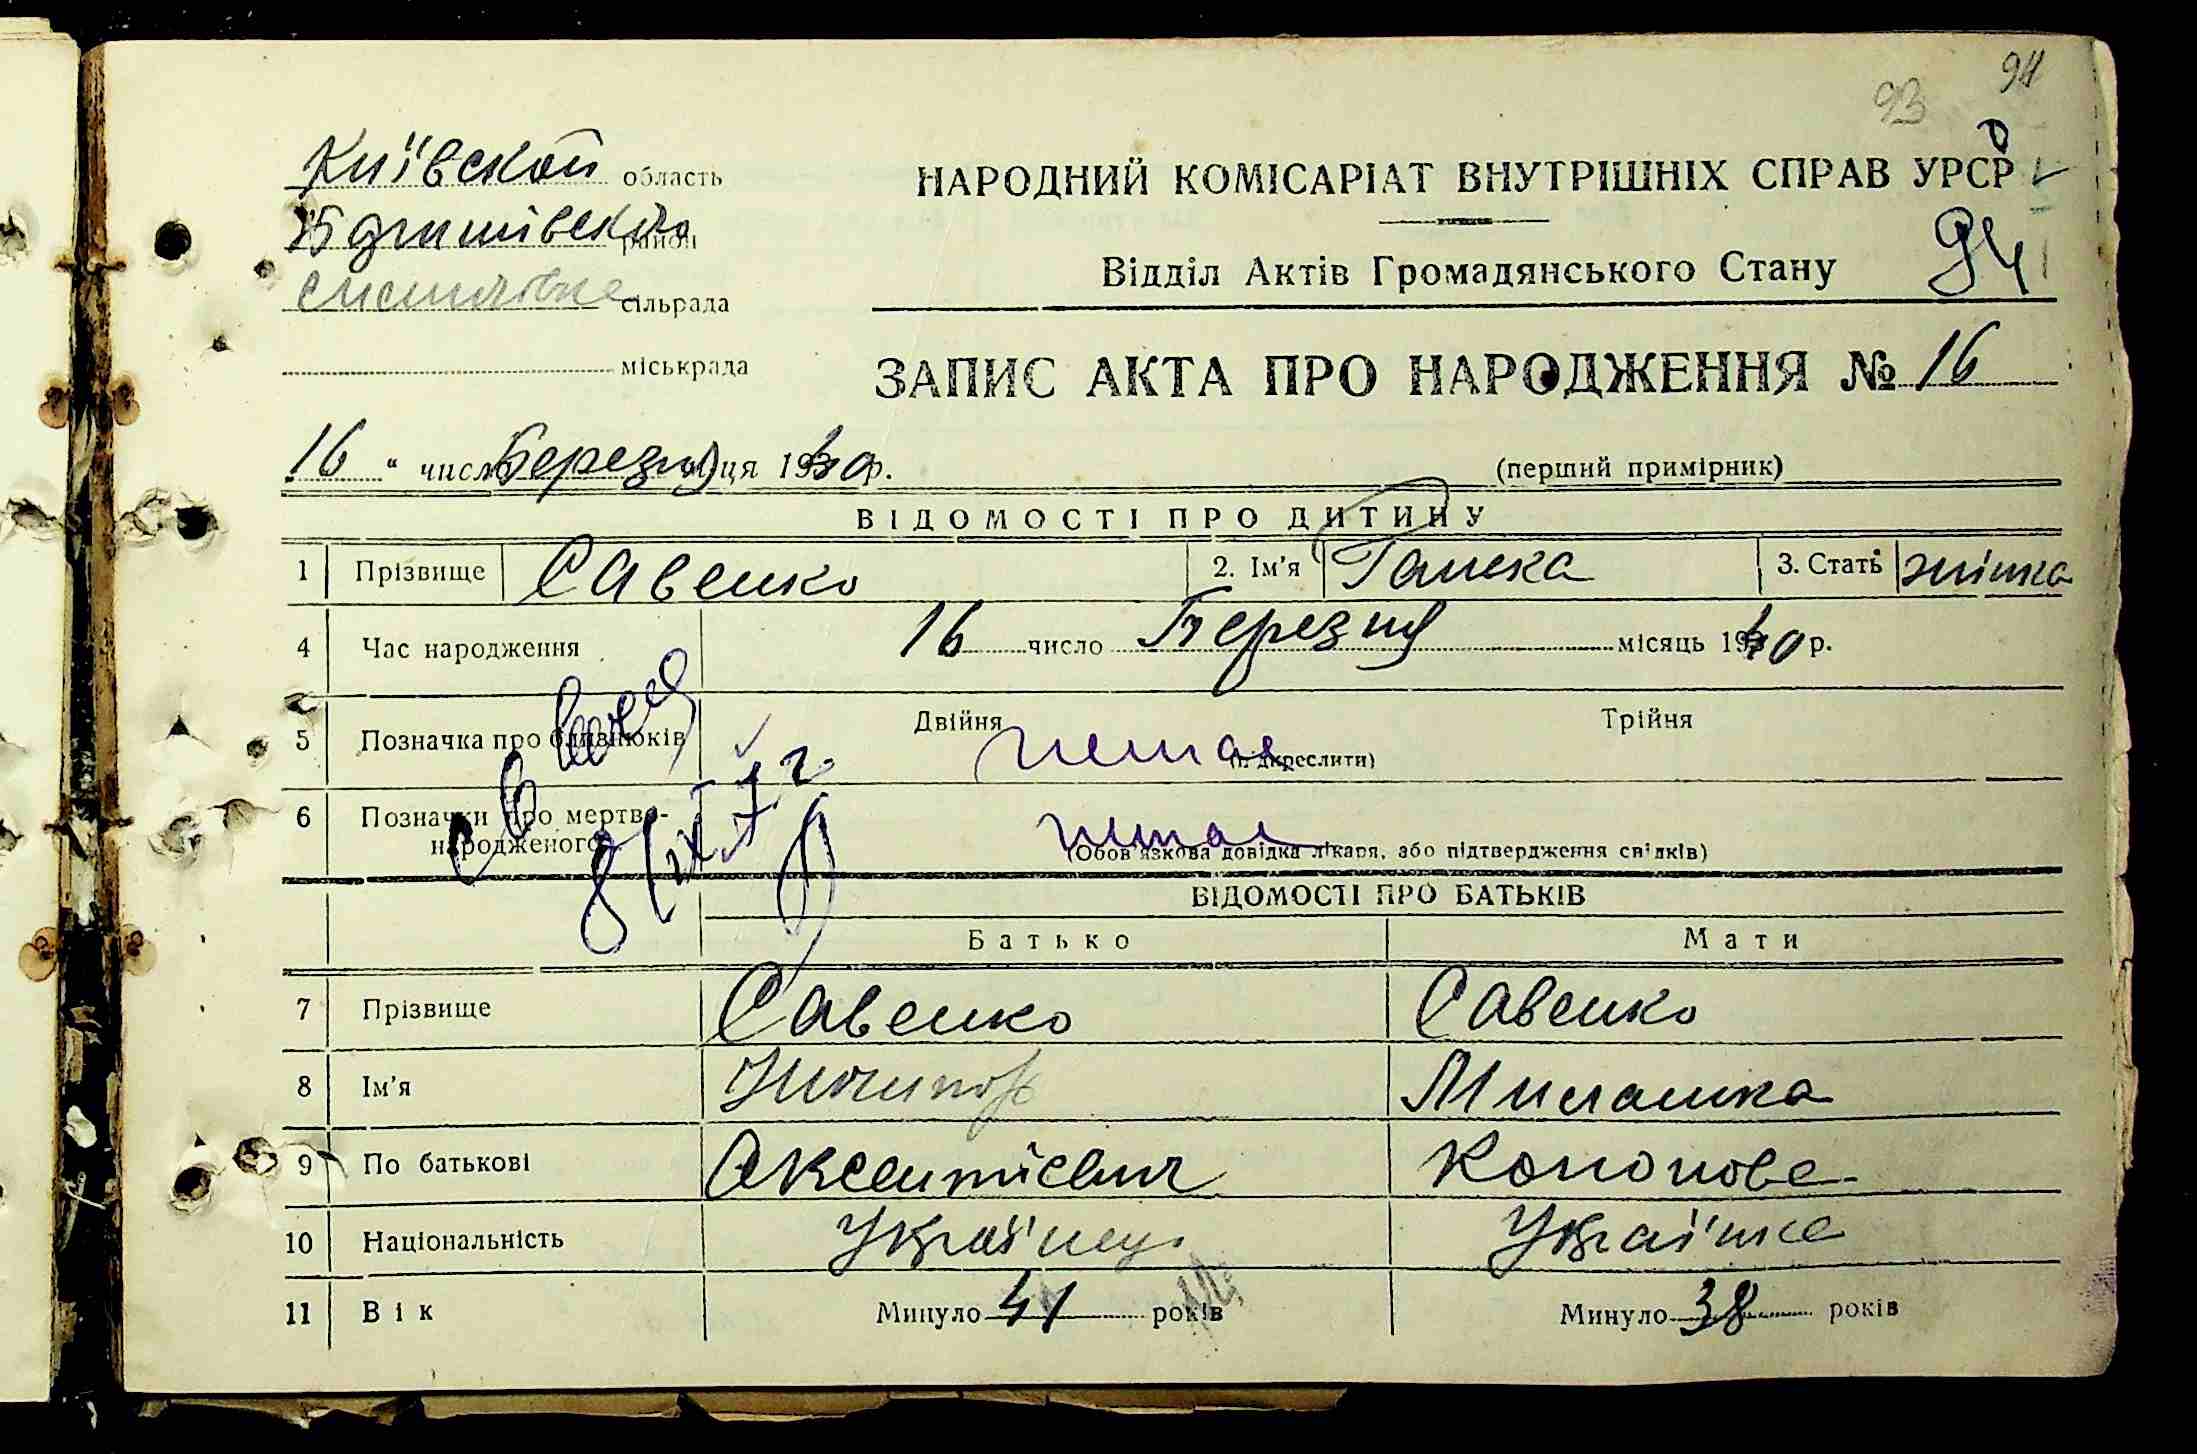 93 94
Київской область
район
сільрада
міськрада
НАРОДНИЙ КОМІСАРІАТ ВНУТРІШНІХ СПРАВ УРСР
Відділ Актів Громадянського Стану 94
ЗАПИС АКТА ПРО НАРОДЖЕННЯ № 16
16 " числ Березня ця 1940 р.
(перший примірник)
ВІДОМОСТІ ПРО ДИТИНУ
1 Прізвище Савенко 2. Ім'я Ганека 3. Стать жінка
4 Час народження 16 число Березня місяць 1940 р.
5 Позначка про близнюків Двійня немає Трійня
(підкреслити)
6 Позначки про мертво-
народженого немає
(Обов'язкова довідка лікаря, або підтвердження свідків)
ВІДОМОСТІ ПРО БАТЬКІВ
Батько Мати
7 Прізвище Савенко Савенко
8 Ім'я Ничипор Милашка
9 По батькові Оксентіевич Кононове
10 Національність Українец Українке
11 Вік Минуло 41 років Минуло 38 років